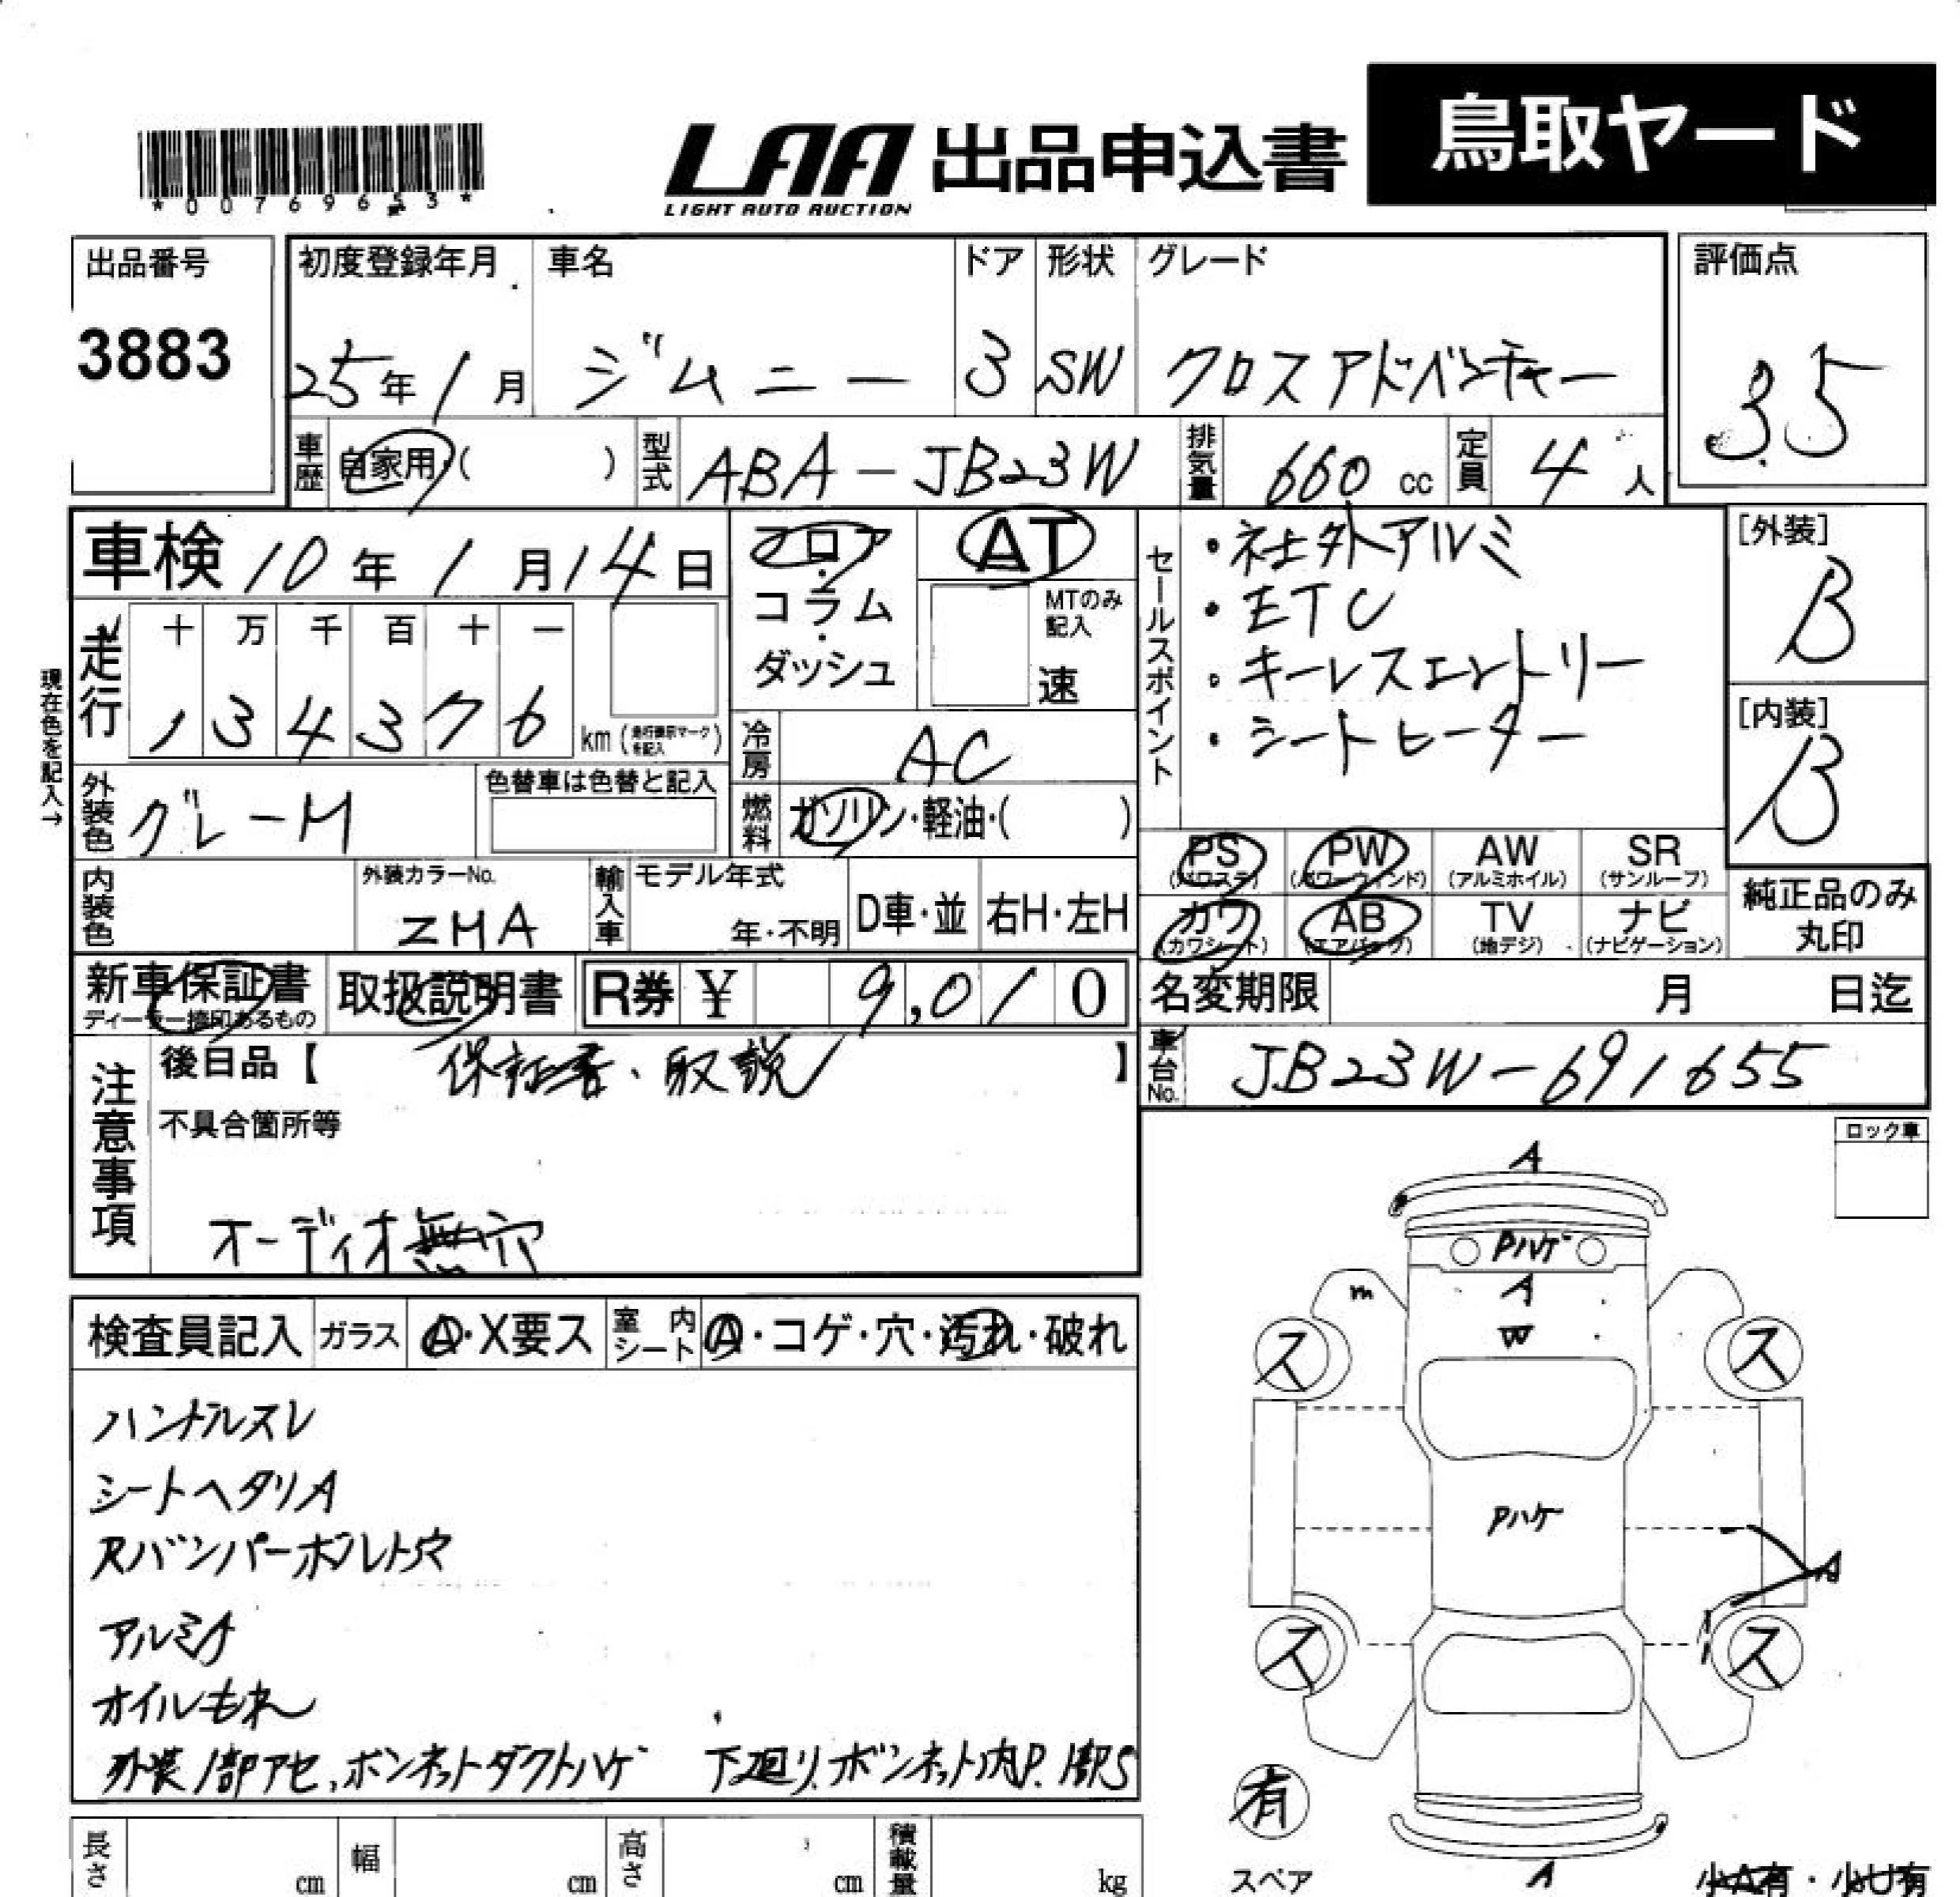 *00769653*
LAA 出品申込書 鳥取ヤード
LIGHT AUTO AUCTION
出品番号 初度登録年月 車名 ドア 形状 グレード 評価点
3883 25年1月 ジムニー 3 SW クロスアドベンチャー 3.5
車歴 自家用・( ) 型式 ABA-JB23W 排気量 660 cc 定員 4 人
車検 10年1月14日 フロア・コラム・ダッシュ AT
MTのみ記入 速
セールスポイント
・社外アルミ
・ETC
・キーレスエントリー
・シートヒーター
[外装] B
[内装] B
現在色を記入→
走行 十 万 千 百 十 一
1 3 4 3 7 6 km (走行表示マークを記入)
冷房 AC
外装色 グレーM 色替車は色替と記入
燃料 ガソリン・軽油・( )
PS (パワステ) PW (パワーウィンド) AW (アルミホイル) SR (サンルーフ)
カワ (カワシート) AB (エアバッグ) TV (地デジ) ナビ (ナビゲーション)
純正品のみ丸印
内装色 外装カラーNo. ZMA 輸入車 モデル年式 年・不明 D車・並 右H・左H
新車保証書 ディーラー捺印あるもの 取扱説明書 R券 ¥ 9,010
名変期限 月 日迄
注意事項 後日品【 保証書、取説 】
車台No. JB23W-691655
不具合箇所等
オーディオ無穴
ロック車
検査員記入 ガラス A・X要ス 室内シート A・コゲ・穴・汚れ・破れ
ハンドルスレ
シートヘタリA
Rバンパーボルト穴
アルミA
オイルもれ
外装1部アセ、ボンネットダクトハゲ 下廻り、ボンネット内P.1部S
A
Pハゲ
A
m
W
ス ス
Pハゲ
A
ス ス
有
スペア
A
小A有・小U有
長さ cm 幅 cm 高さ cm 積載量 kg